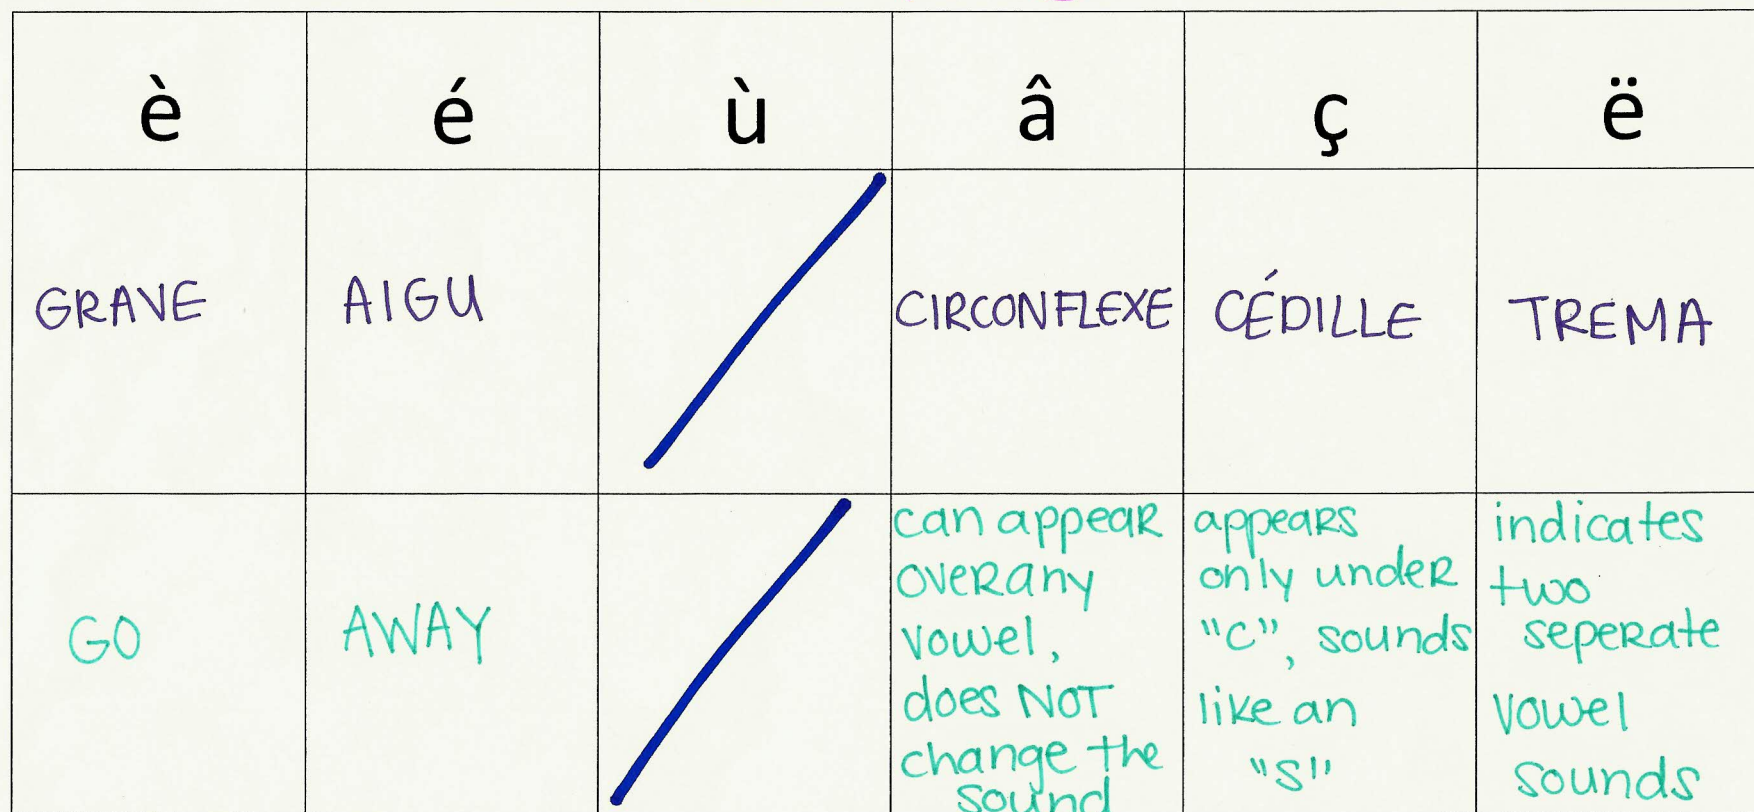 è é ù â ç ë
GRAVE AIGU CIRCONFLEXE CÉDILLE TREMA
GO
AWAY
can appear
over any
vowel,
does NOT
change the
sound
appears
only under
"C", sounds
like an
"S"
indicates
two
seperate
vowel
sounds